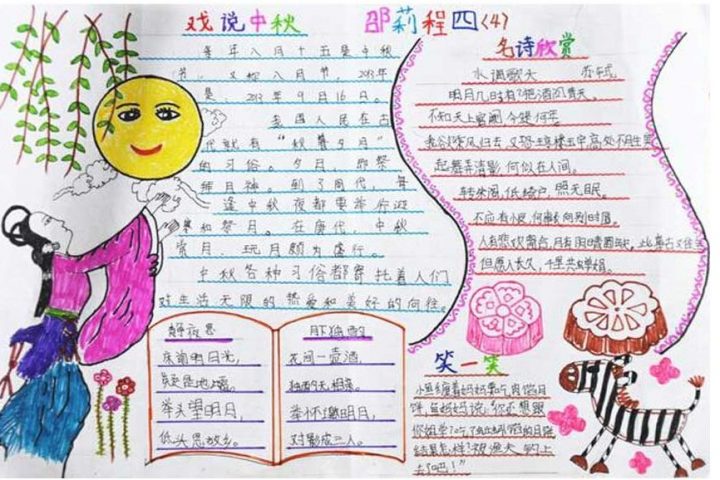 戏说中秋
邵莉程四(4)
每年八月十五是中秋
节，又称八月节，2013年
是，2013年9月16日。
我国人民在古
代就有“秋暮夕月”
的习俗。夕月，即祭
拜月神。到了周代，每
逢中秋夜都要举行迎
寒和祭月。在唐代，中秋
赏月、玩月颇为盛行。
中秋各种习俗都寄托着人们
对生活无限的热爱和美好的向往。
名诗欣赏
水调歌头 苏轼
明月几时有？把酒问青天。
不知天上宫阙，今夕是何年
我欲乘风归去 又恐琼楼玉宇 高处不胜寒
起舞弄清影 何似在人间。
转朱阁，低绮户，照无眠。
不应有恨，何事长向别时圆。
人有悲欢离合，月有阴晴圆缺，此事古
但愿人长久，千里共婵娟。
静夜思
床前明月光，
疑是地上霜。
举头望明月，
低头思故乡。
月独酌
花间一壶酒，
独酌无相亲。
举杯邀明月，
对影成三人。
笑一笑
小鱼缠着妈妈要吃肉馅月
饼，鱼妈妈说：“你还想跟
你姐学？
结果怎样？被渔夫钓上
去了吧！”